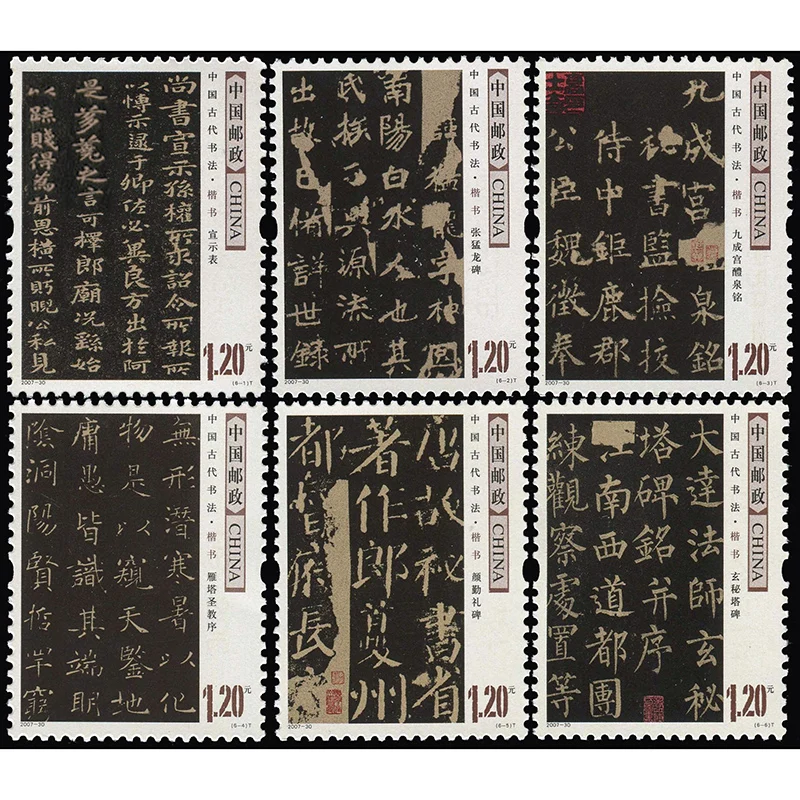 中国邮政 CHINA
中国古代书法·楷书 宣示表
尚書宣示孫權所求詔令所報所
以博示逮于卿佐必異良方出於阿
是芻蕘之言可擇郎廟況繇始
以疏賤得為前恩橫所眄睨公私見
1.20元
2007-30
(6-1)T
中国邮政 CHINA
中国古代书法·楷书 张猛龙碑
猛龍字神冏
南陽白水人也其
氏族分興源流所
出故已備詳世錄
1.20元
2007-30
(6-2)T
中国邮政 CHINA
中国古代书法·楷书 九成宫醴泉铭
九成宮醴泉銘
秘書監檢校
侍中鉅鹿郡
公臣魏徵奉
1.20元
2007-30
(6-3)T
中国邮政 CHINA
中国古代书法·楷书 雁塔圣教序
無形潛寒暑以化
物是以窺天鑒地
庸愚皆識其端明
陰洞陽賢哲罕窮
1.20元
2007-30
(6-4)T
中国邮政 CHINA
中国古代书法·楷书 颜勤礼碑
唐故秘書省
著作郎夔州
都督府長
1.20元
2007-30
(6-5)T
中国邮政 CHINA
中国古代书法·楷书 玄秘塔碑
大達法師玄秘
塔碑銘并序
江南西道都團
練觀察處置等
1.20元
2007-30
(6-6)T